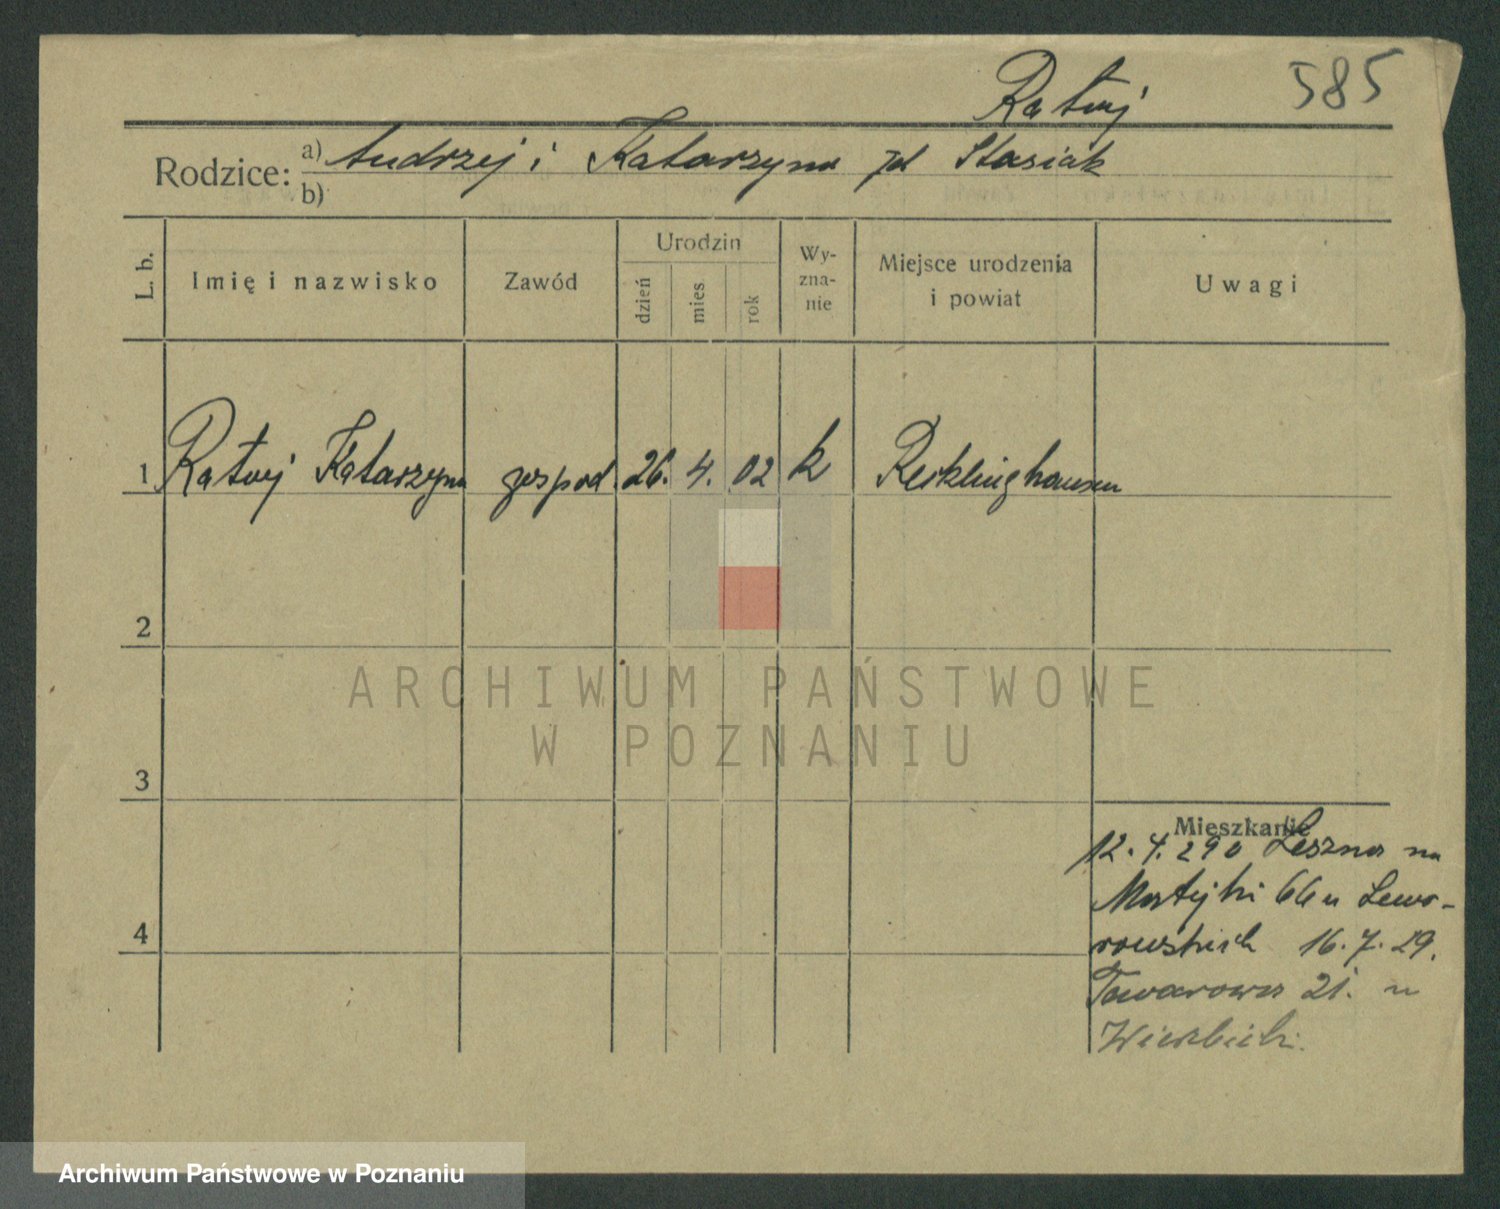 585
Ratwij
Rodzice: a) Andrzej i Katarzyna zd Stasiak
b)
L. b.
Imię i nazwisko
Zawód
Urodzin
dzień
mies.
rok
Wy-
zna-
nie
Miejsce urodzenia
i powiat
Uwagi
1 Katarzyna gospod. 26. 4. 02 k Recklinghausen
2
3
4
Mieszkanie
12. 4. 29 Leszna na
66 u Lewo-
rowskich 16. 7. 29.
Towarowa 21. u
ARCHIWUM PAŃSTWOWE
W POZNANIU
Archiwum Państwowe w Poznaniu